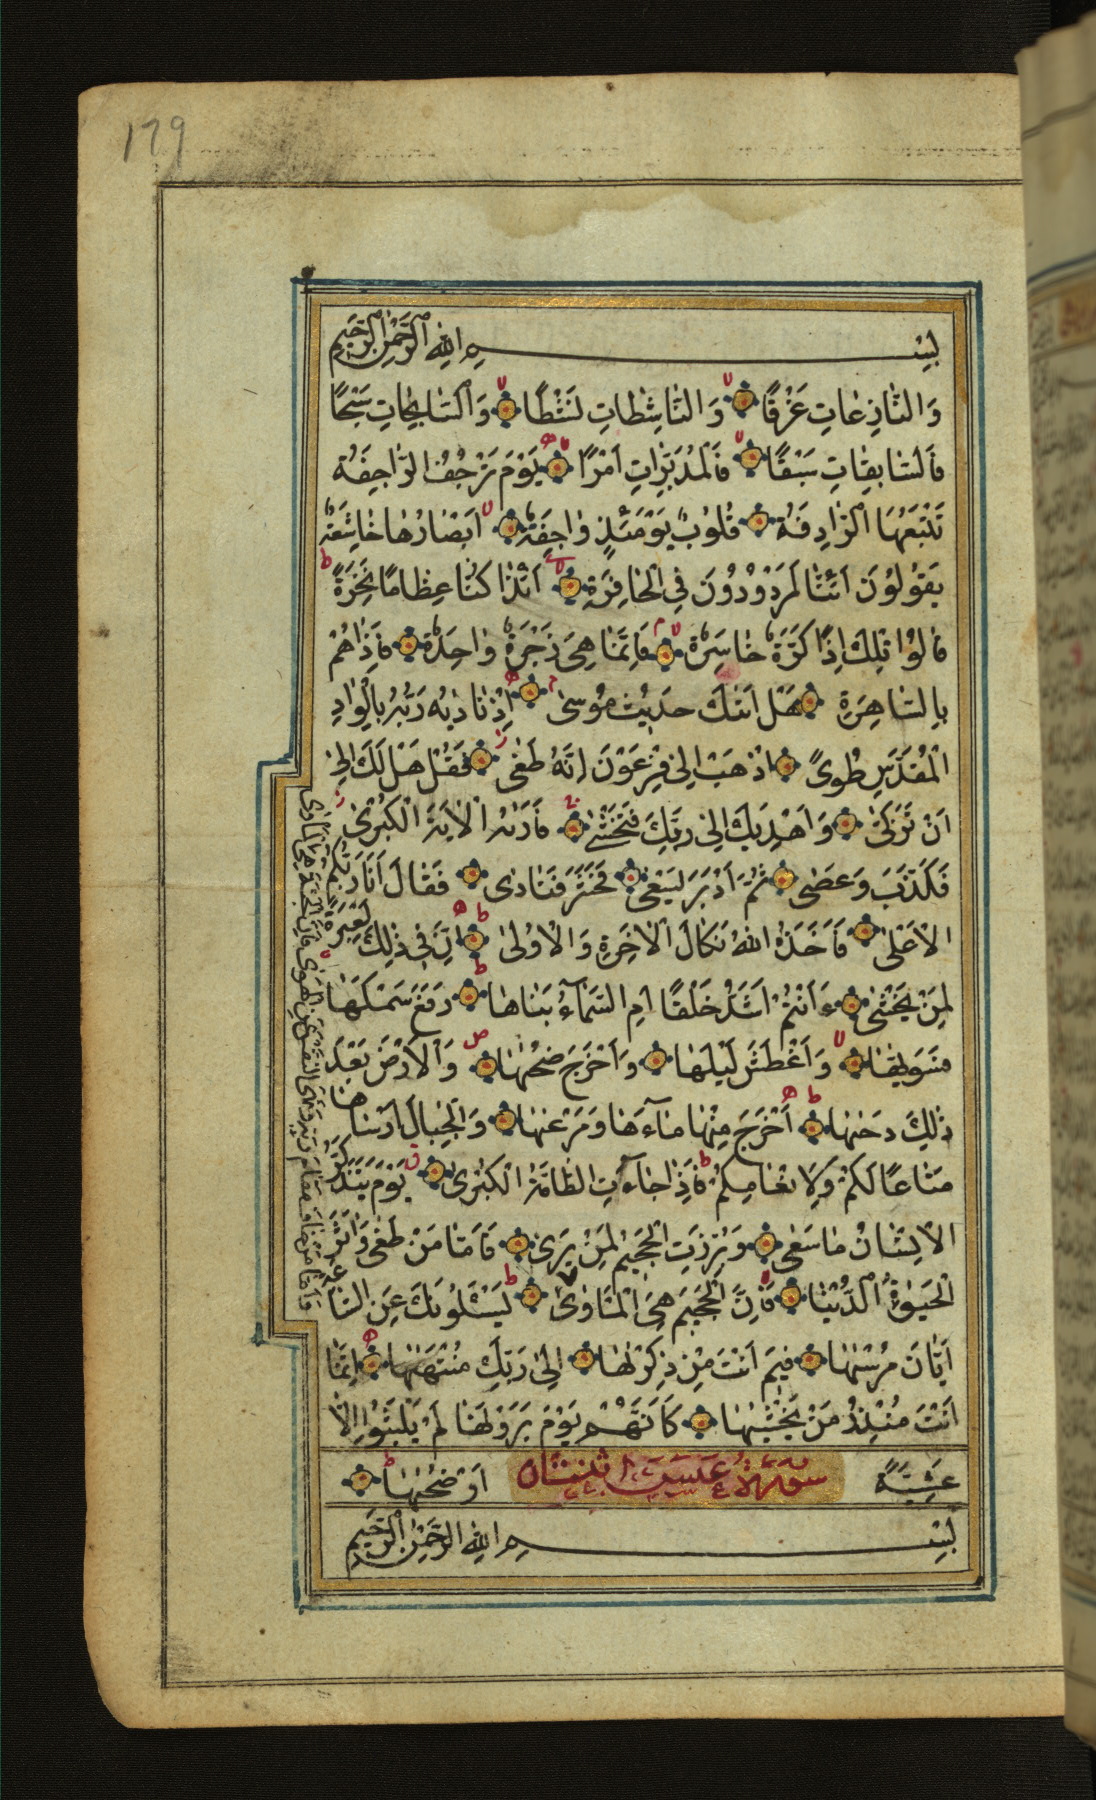 179
بِسْمِ اللهِ الرَّحْمٰنِ الرَّحِيمِ
وَالنَّازِعَاتِ غَرْقًا وَالنَّاشِطَاتِ نَشْطًا وَالسَّابِحَاتِ سَبْحًا
فَالسَّابِقَاتِ سَبْقًا فَالْمُدَبِّرَاتِ اَمْرًا يَوْمَ تَرْجُفُ الرَّاجِفَةُ
تَتْبَعُهَا الرَّادِفَةُ قُلُوبٌ يَوْمَئِذٍ وَاجِفَةٌ اَبْصَارُهَا خَاشِعَةٌ
يَقُولُونَ اَئِنَّا لَمَرْدُودُونَ فِي الْحَافِرَةِ اَئِذَا كُنَّا عِظَامًا نَخِرَةً
قَالُوا تِلْكَ اِذًا كَرَّةٌ خَاسِرَةٌ فَاِنَّمَا هِيَ زَجْرَةٌ وَاحِدَةٌ فَاِذَا هُمْ
بِالسَّاهِرَةِ هَلْ اَتٰكَ حَدِيثُ مُوسٰى اِذْ نَادٰيهُ رَبُّهُ بِالْوَادِ
الْمُقَدَّسِ طُوًى اذْهَبْ اِلٰى فِرْعَوْنَ اِنَّهُ طَغٰى فَقُلْ هَلْ لَكَ اِلٰى
اَنْ تَزَكّٰى وَاَهْدِيَكَ اِلٰى رَبِّكَ فَتَخْشٰى فَاَرٰيهُ الْاٰيَةَ الْكُبْرٰى
فَكَذَّبَ وَعَصٰى ثُمَّ اَدْبَرَ يَسْعٰى فَحَشَرَ فَنَادٰى فَقَالَ اَنَا رَبُّكُمُ
الْاَعْلٰى فَاَخَذَهُ اللهُ نَكَالَ الْاٰخِرَةِ وَالْاُولٰى اِنَّ فِي ذٰلِكَ لَعِبْرَةً
لِمَنْ يَخْشٰى ءَاَنْتُمْ اَشَدُّ خَلْقًا اَمِ السَّمَاءُ بَنَاهَا رَفَعَ سَمْكَهَا
فَسَوّٰيهَا وَاَغْطَشَ لَيْلَهَا وَاَخْرَجَ ضُحٰيهَا وَالْاَرْضَ بَعْدَ
ذٰلِكَ دَحٰيهَا اَخْرَجَ مِنْهَا مَاءَهَا وَمَرْعٰيهَا وَالْجِبَالَ اَرْسٰاهَا
مَتَاعًا لَكُمْ وَلِاَنْعَامِكُمْ فَاِذَا جَاءَتِ الطَّامَّةُ الْكُبْرٰى يَوْمَ يَتَذَكَّرُ
الْاِنْسَانُ مَا سَعٰى وَبُرِّزَتِ الْجَحِيمُ لِمَنْ يَرٰى فَاَمَّا مَنْ طَغٰى وَاٰثَرَ
الْحَيٰوةَ الدُّنْيَا فَاِنَّ الْجَحِيمَ هِيَ الْمَأْوٰى يَسْئَلُونَكَ عَنِ السَّاعَةِ
اَيَّانَ مُرْسٰيهَا فِيمَ اَنْتَ مِنْ ذِكْرٰيهَا اِلٰى رَبِّكَ مُنْتَهٰيهَا اِنَّمَا
اَنْتَ مُنْذِرُ مَنْ يَخْشٰيهَا كَاَنَّهُمْ يَوْمَ يَرَوْنَهَا لَمْ يَلْبَثُوا اِلَّا
عَشِيَّةً سورة عبس اثنتان اَوْ ضُحٰيهَا
بِسْمِ اللهِ الرَّحْمٰنِ الرَّحِيمِ
فَاَمَّا مَنْ خَافَ مَقَامَ رَبِّهِ وَنَهَى النَّفْسَ عَنِ الْهَوٰى فَاِنَّ الْجَنَّةَ هِيَ الْمَأْوٰى